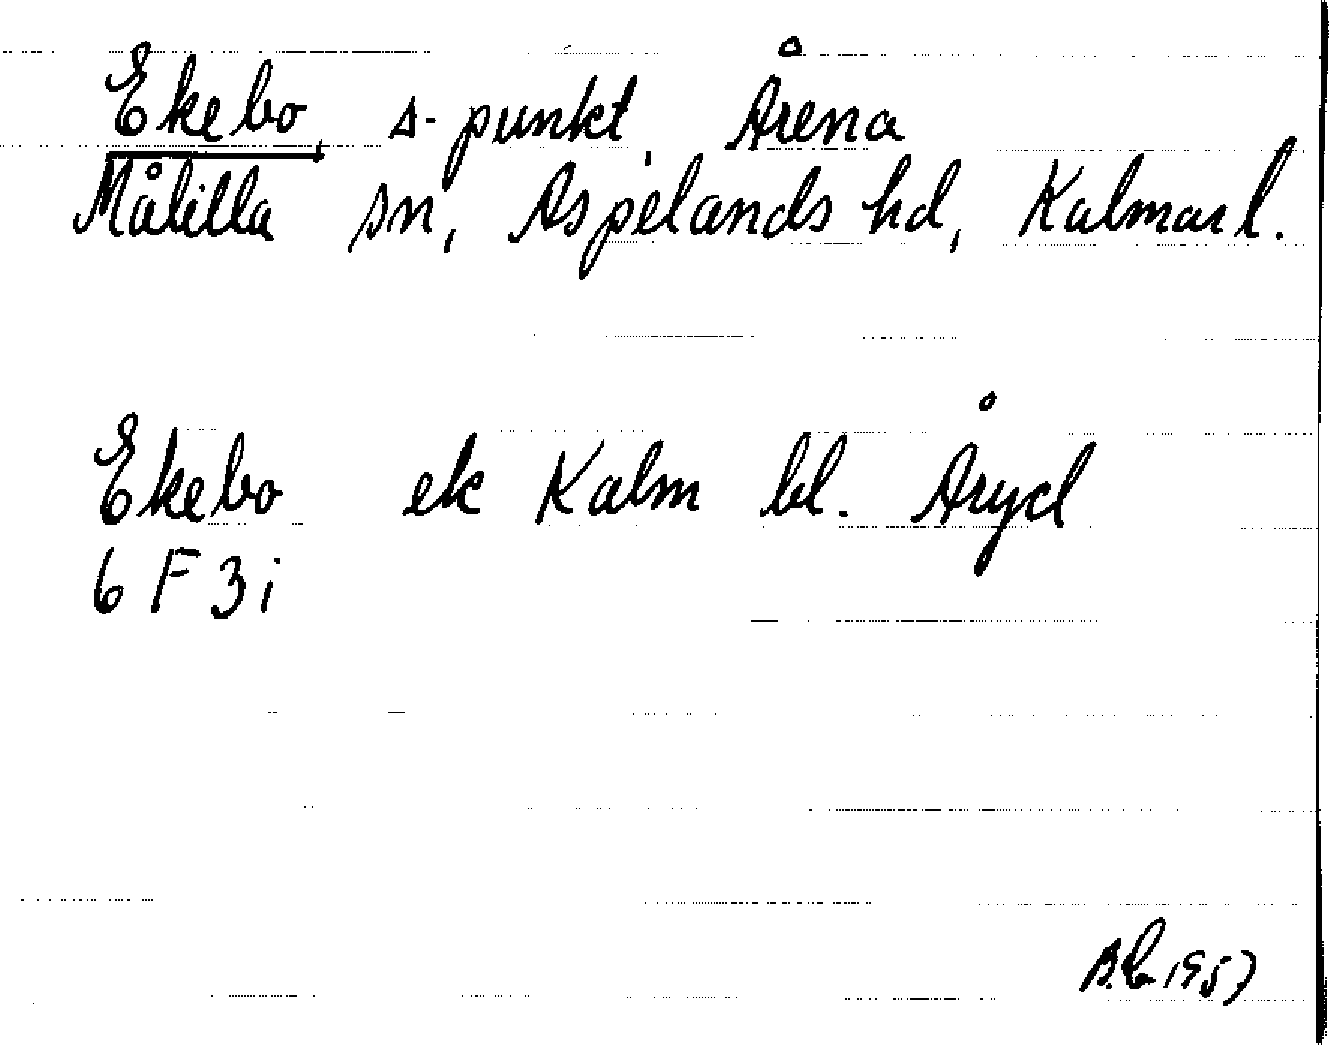 Ekebo, s-punkt, Årena
Målilla sn, Aspelands hd, Kalmar l.
Ekebo ek Kalm bl. Åryd
6 F 3i
1957